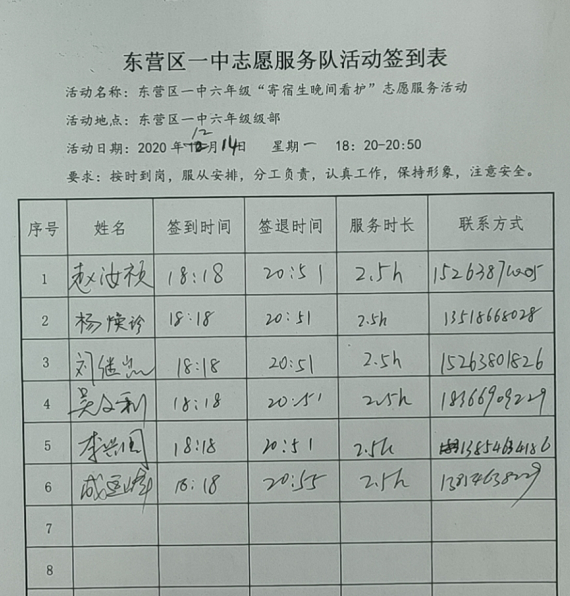 东营区一中志愿服务队活动签到表
活动名称：东营区一中六年级“寄宿生晚间看护”志愿服务活动
活动地点：东营区一中六年级级部
活动日期：2020 年 12 月 14 日 星期一 18：20-20:50
要求：按时到岗，服从安排，分工负责，认真工作，保持形象，注意安全。
序号 姓名 签到时间 签退时间 服务时长 联系方式
1 赵汝祯 18:18 20:51 2.5h
2 杨焕珍 18:18 20:51 2.5h 13518668028
3 刘继 18:18 20:51 2.5h 15263801826
4 吴文利 18:18 20:51 2.5h 18366909229
5 李兴国 18:18 20:51 2.5h 13854634186
6 18:18 20:55 2.5h
7
8